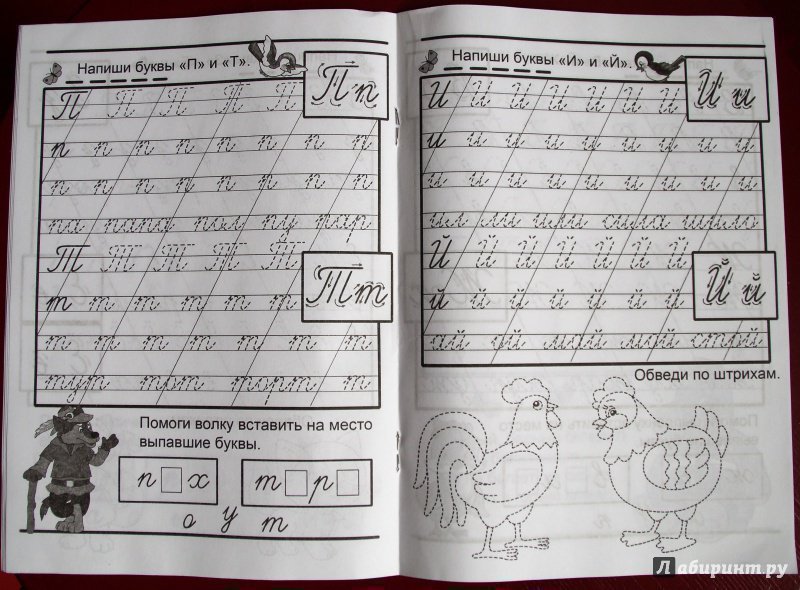 Напиши буквы «П» и «Т».
П П П П П
П п
п п п п п п п п
п п п п п п п п
па папа пол пу пар
Т Т Т Т Т
Т т
т т т т т т
т т т т т т т т
тут торт торт т
Помоги волку вставить на место
выпавшие буквы.
п х т р
о у т
Напиши буквы «И» и «Й».
И И И И И И И
И и
и и и и и и и и и
и и и и и и и и и
ил ми сила
Й Й Й Й Й Й Й
Й й
й й й й й й й
ай ой май мой строй
Обведи по штрихам.
Лабиринт.ру